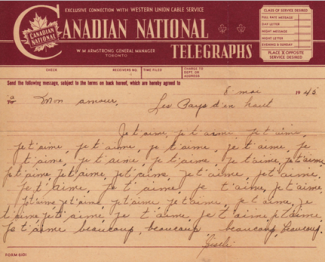 EXCLUSIVE CONNECTION WITH WESTERN UNION CABLE SERVICE
CANADIAN NATIONAL
CANADIAN NATIONAL
TELEGRAPHS
W.M. ARMSTRONG, GENERAL MANAGER
TORONTO
CLASS OF SERVICE DESIRED
FULL-RATE MESSAGE
DAY LETTER
NIGHT MESSAGE
NIGHT LETTER
PLACE X OPPOSITE SERVICE DESIRED
CHECK
RECEIVER'S NO.
TIME FILED
Send the following message, subject to the terms on back hereof, which are hereby agreed to
8 mai 1942
To Mon amour, Les Pays d'en haut
Je t'aime, je t'aime, je t'aime,
je t'aime, je t'aime, je t'aime, je t'aime, je
t'aime, je t'aime, je t'aime, je t'aime, je t'aime,
je t'aime, je t'aime, je t'aime, je t'aime, je t'aime,
je t'aime, je t'aime, je t'aime, je t'aime,
je t'aime, je t'aime, je t'aime, je t'aime, je
t'aime, je t'aime, je t'aime, je t'aime, je t'aime
je t'aime beaucoup, beaucoup, beaucoup, beaucoup.